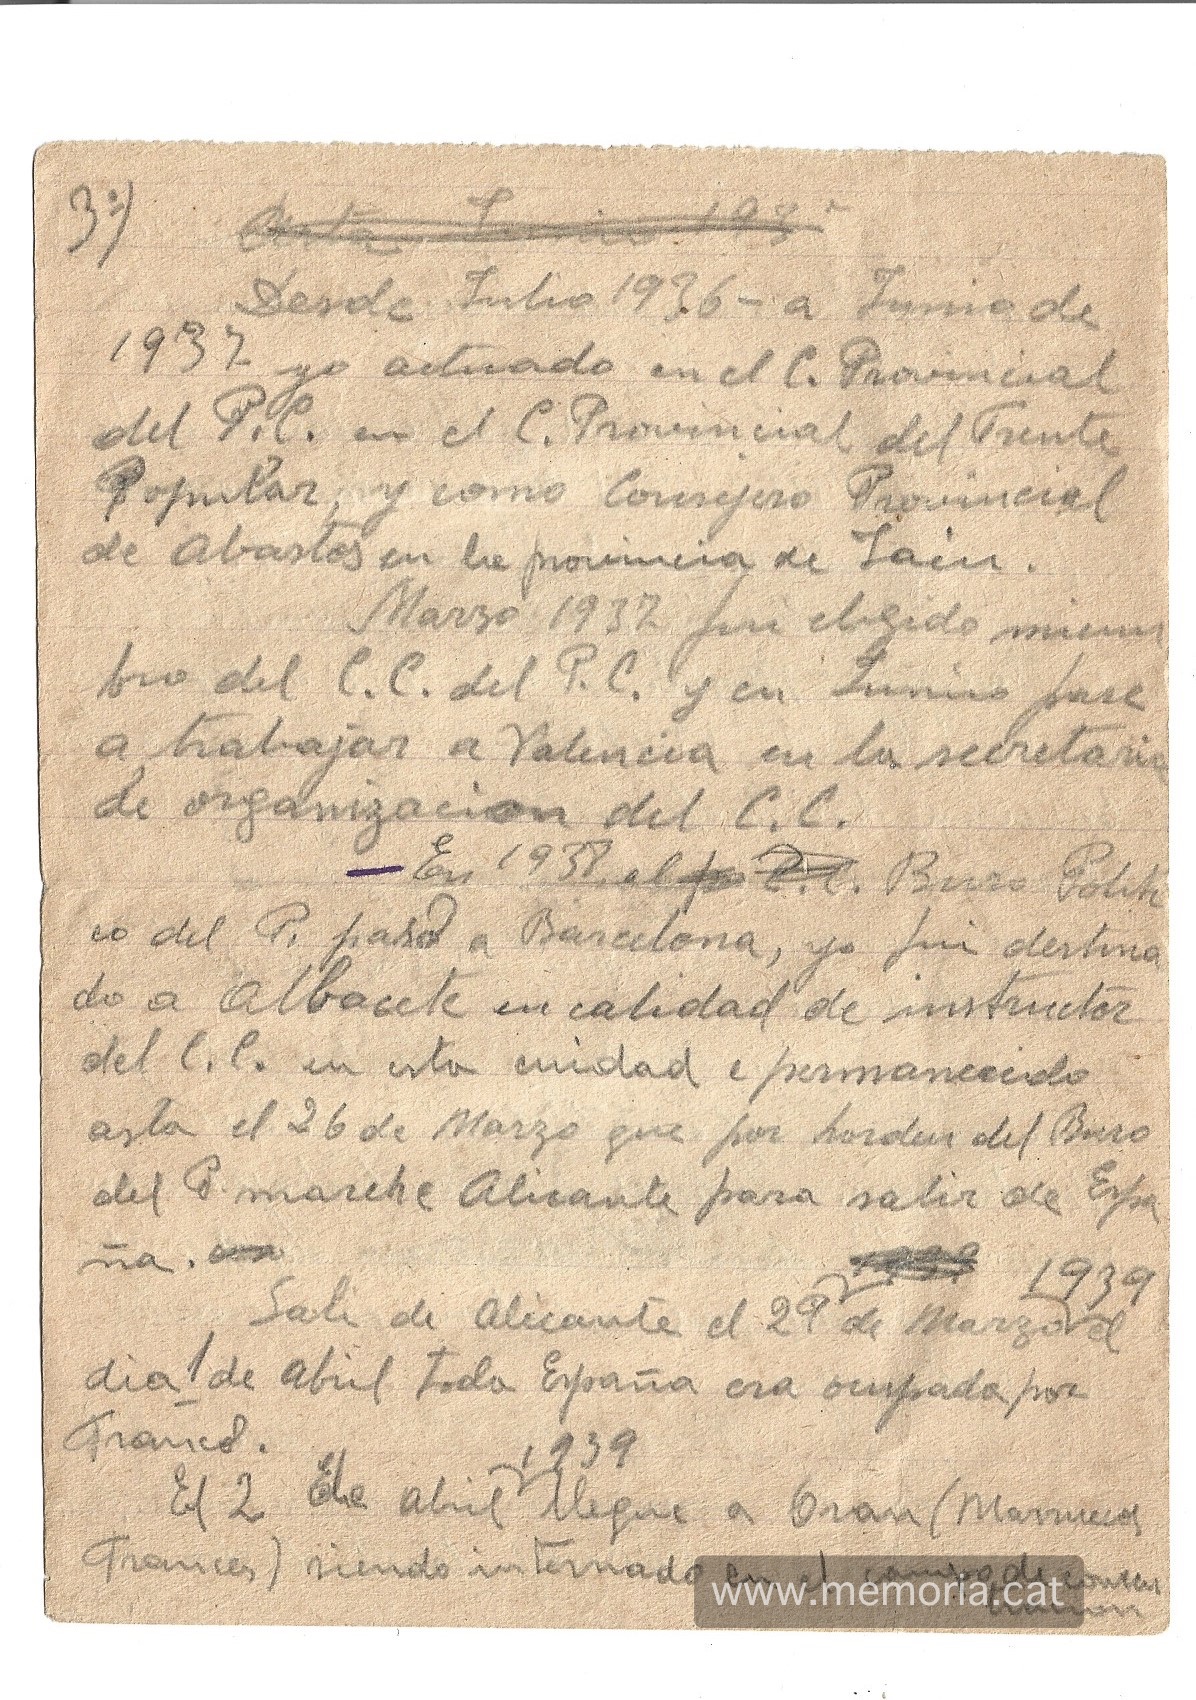 3º)
Desde Julio 1936 - a Junio de
1937 yo actuado en el C. Provincial
del P.C. en el C. Provincial del Frente
Popular, y como Consejero Provincial
de Abastos en la provincia de Jaén.
Marzo 1937 fui elegido miem
bro del C.C. del P.C. y en Junio pase
a trabajar a Valencia en la secretaria
de organizacion del C.C.
— En 1937 el P.C. Buro Politi
co del P. paso a Barcelona, yo fui destina
do a Albacete en calidad de instructor
del C.C. en esta ciudad e permanecido
asta el 26 de Marzo que por horden del Buro
del P. marche Alicante para salir de Espa
ña.
1939
Sali de Alicante el 29 de Marzo el
dia 1 de Abril toda España era ocupada por
Franco.
1939
El 2 de Abril llegue a Oran (Marruecos
Frances) siendo internado en el campo de concen
tracion
www.memoria.cat